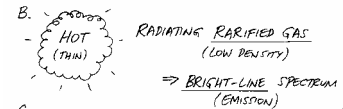 B.
HOT
(THIN)
RADIATING RARIFIED GAS
(LOW DENSITY)
⇒ BRIGHT-LINE SPECTRUM
(EMISSION)